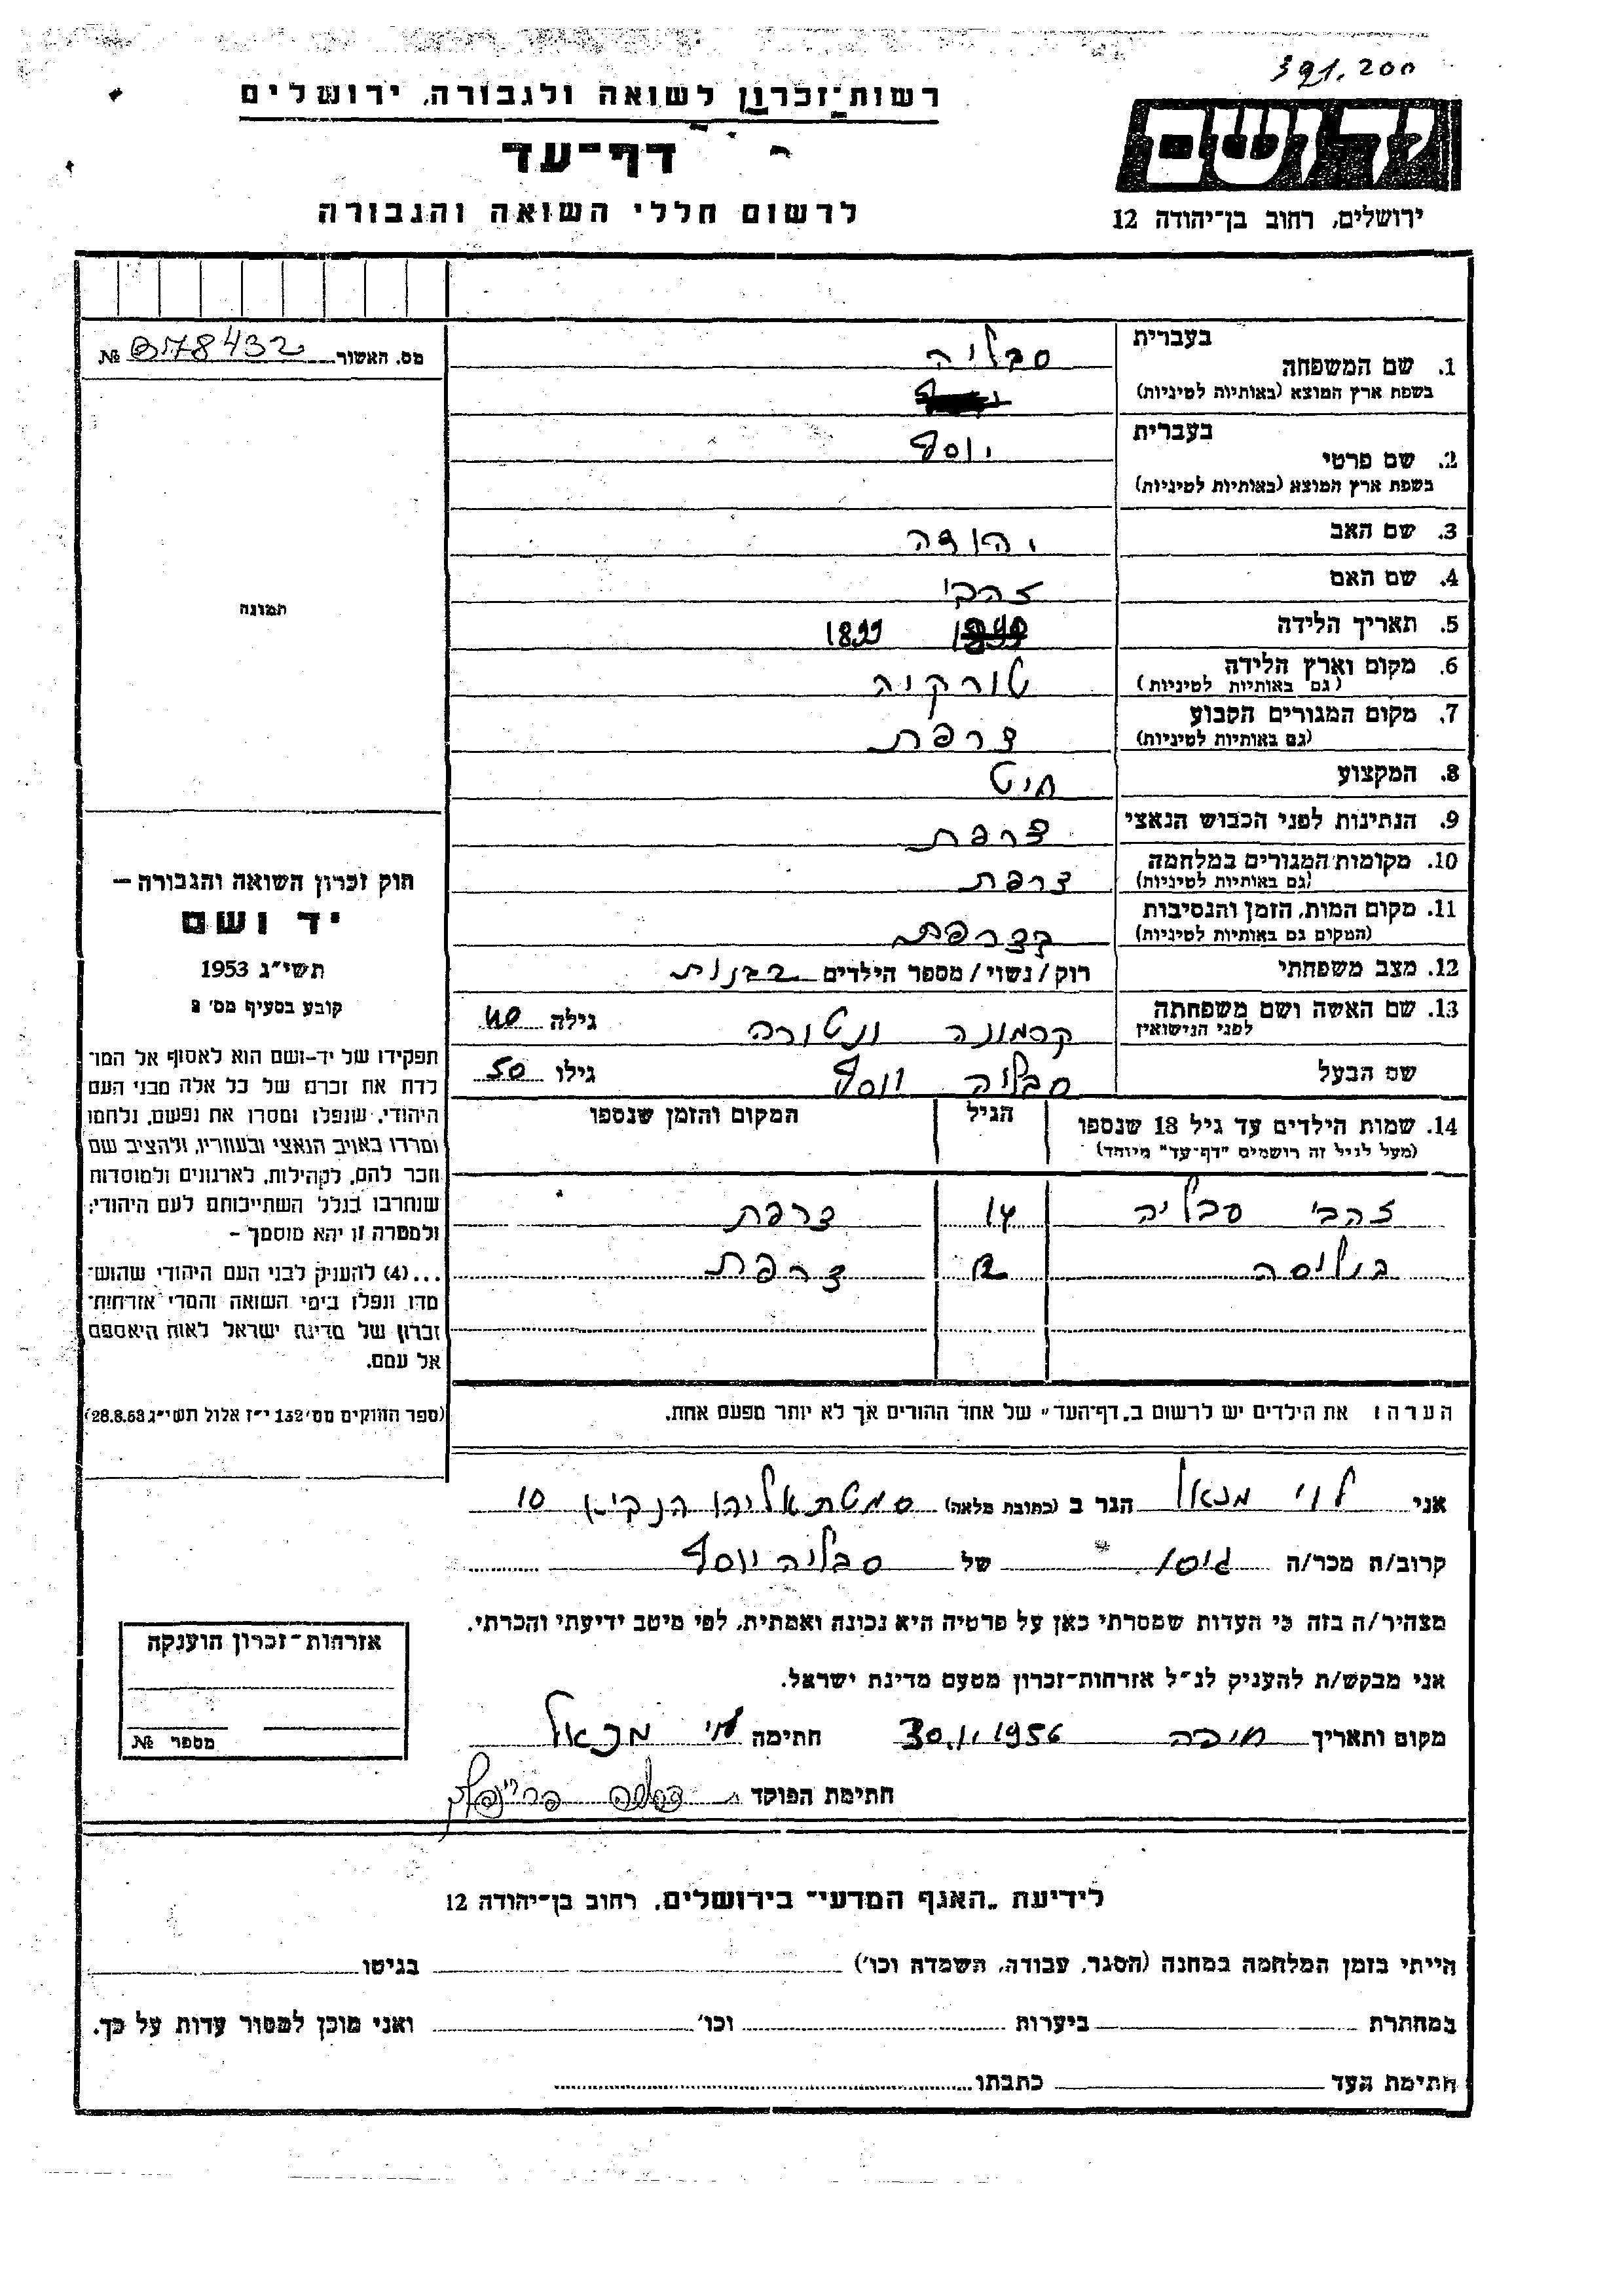 391.200
רשות־זכרון לשואה ולגבורה, ירושלים
דף־עד
לרשום חללי השואה והגבורה
יד ושם
ירושלים, רחוב בן־יהודה 12
מס. האשור № 378432
בעברית
1. שם המשפחה סבליה
בשפת ארץ המוצא (באותיות לטיניות)
בעברית
2. שם פרטי יוסף
בשפת ארץ המוצא (באותיות לטיניות)
3. שם האב יהודה
4. שם האם זהבי
5. תאריך הלידה 1899
6. מקום וארץ הלידה טורקיה
(גם באותיות לטיניות)
7. מקום המגורים הקבוע צרפת
(גם באותיות לטיניות)
8. המקצוע חיט
9. הנתינות לפני הכבוש הנאצי צרפת
10. מקומות המגורים במלחמה צרפת
(גם באותיות לטיניות)
11. מקום המות, הזמן והנסיבות בצרפת
(המקום גם באותיות לטיניות)
12. מצב משפחתי רוק/נשוי/מספר הילדים 2 בנות
13. שם האשה ושם משפחתה קרמונה ונטורה גילה 40
לפני הנישואין
שם הבעל סבליה יוסף גילו 50
14. שמות הילדים עד גיל 18 שנספו הגיל המקום והזמן שנספו
(מעל לגיל זה רושמים "דף־עד" מיוחד)
זהבי סבליה 14 צרפת
בוליסה 12 צרפת
הערה: את הילדים יש לרשום ב„דף־העד" של אחד ההורים אך לא יותר מפעם אחת.
תמונה
חוק זכרון השואה והגבורה —
יד ושם
תשי"ג 1953
קובע בסעיף מס' 2
תפקידו של יד-ושם הוא לאסוף אל המו־
לדת את זכרם של כל אלה מבני העם
היהודי, שנפלו ומסרו את נפשם, נלחמו
ומרדו באויב הנאצי ובעוזריו, ולהציב שם
וזכר להם, לקהילות, לארגונים ולמוסדות
שנחרבו בגלל השתייכותם לעם היהודי;
ולמטרה זו יהא מוסמך -
...(4) להעניק לבני העם היהודי שהוש־
מדו ונפלו בימי השואה והמרי אזרחות־
זכרון של מדינת ישראל לאות היאספם
אל עמם.
(ספר החוקים מס' 132 י"ז אלול תשי"ג 28.8.53)
אני לוי מכאל הגר ב (כתובת מלאה) סמטת אליהו הנביא 10
קרוב/ה מכר/ה גיסו של סבליה יוסף
מצהיר/ה בזה כי העדות שמסרתי כאן על פרטיה היא נכונה ואמתית, לפי מיטב ידיעתי והכרתי.
אני מבקש/ת להעניק לנ"ל אזרחות־זכרון מטעם מדינת ישראל.
מקום ותאריך חיפה 30.11.1956 חתימה לוי מכאל
חתימת הפוקד
אזרחות־זכרון הוענקה
מספר №
לידיעת „האגף המדעי" בירושלים, רחוב בן־יהודה 12
הייתי בזמן המלחמה במחנה (הסגר, עבודה, השמדה וכו') בגיטו
במחתרת ביערות וכו' ואני מוכן למסור עדות על כך.
חתימת העד כתבתו